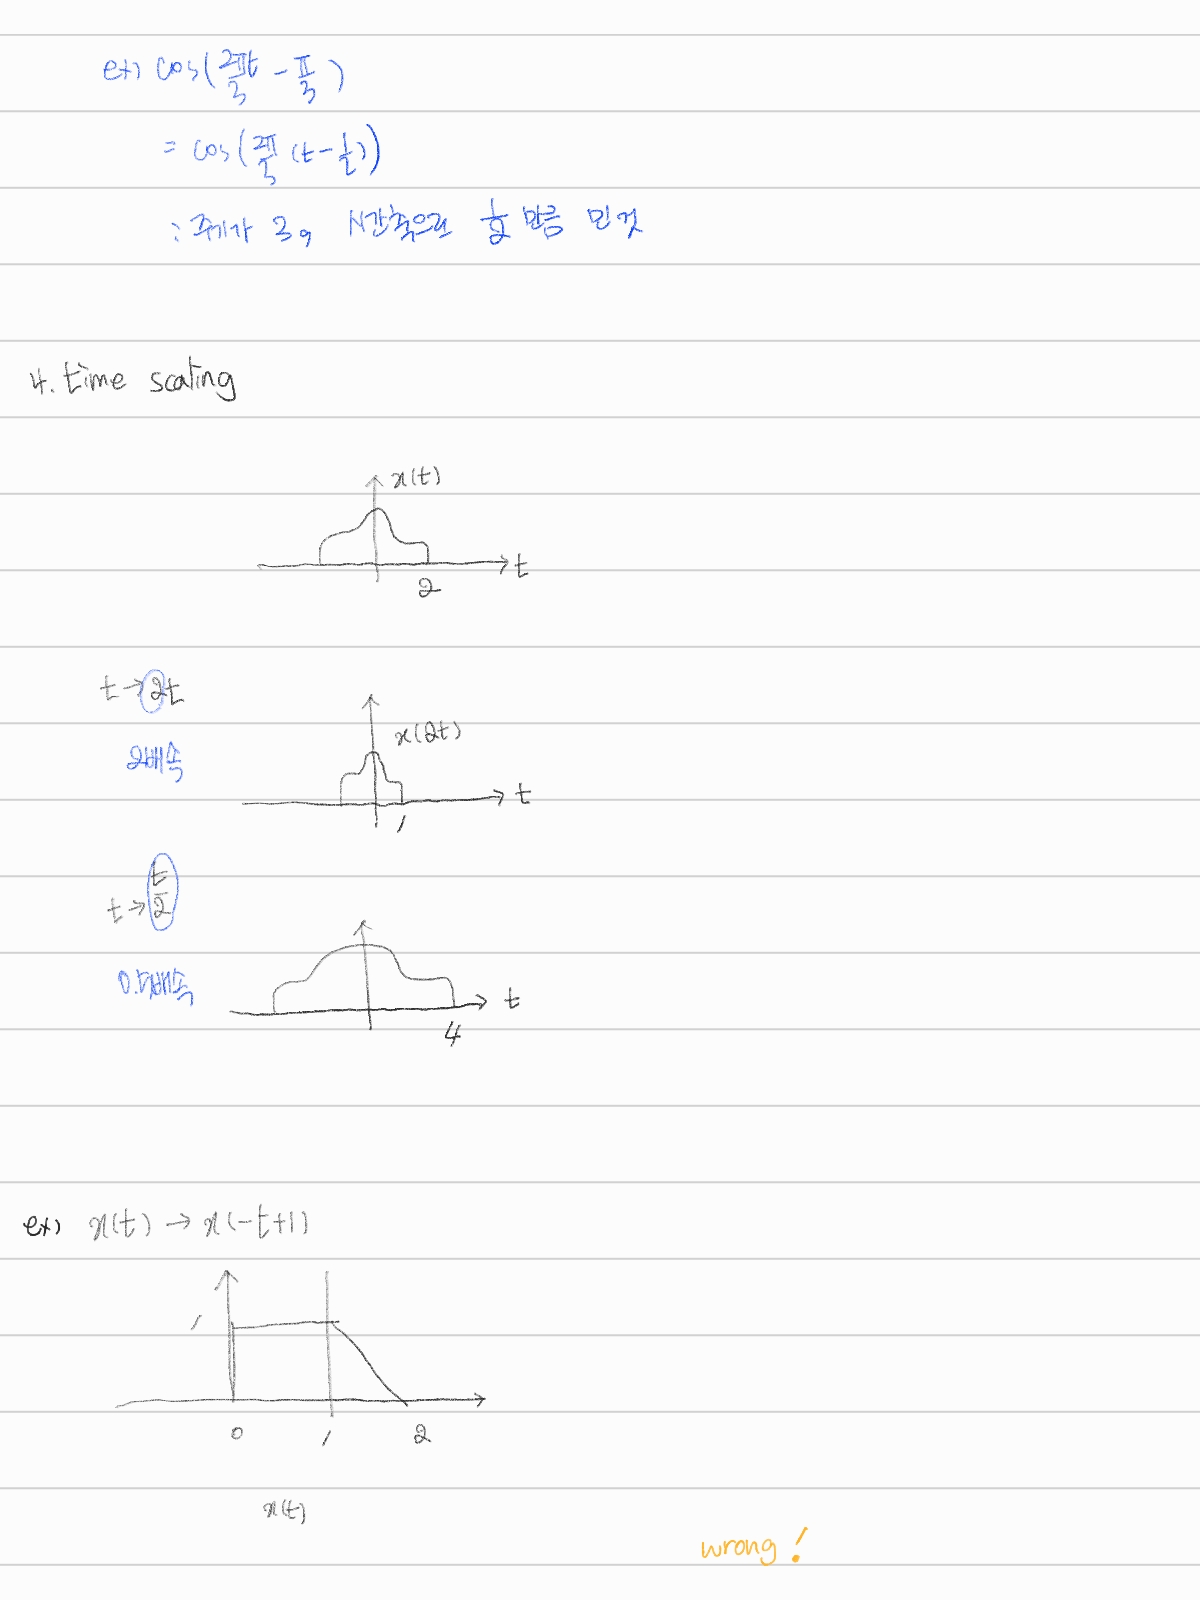 ex) cos(2πt/3 - π/3)
= cos(2π/3 (t - 1/2))
: 주기가 3, 시간축으로 1/2 만큼 민 것
4. time scaling
x(t)
t
2
t → 2t
x(2t)
2배속
t
1
t → t/2
0.5배속
t
4
ex) x(t) → x(-t+1)
1
0 1 2
x(t)
wrong!